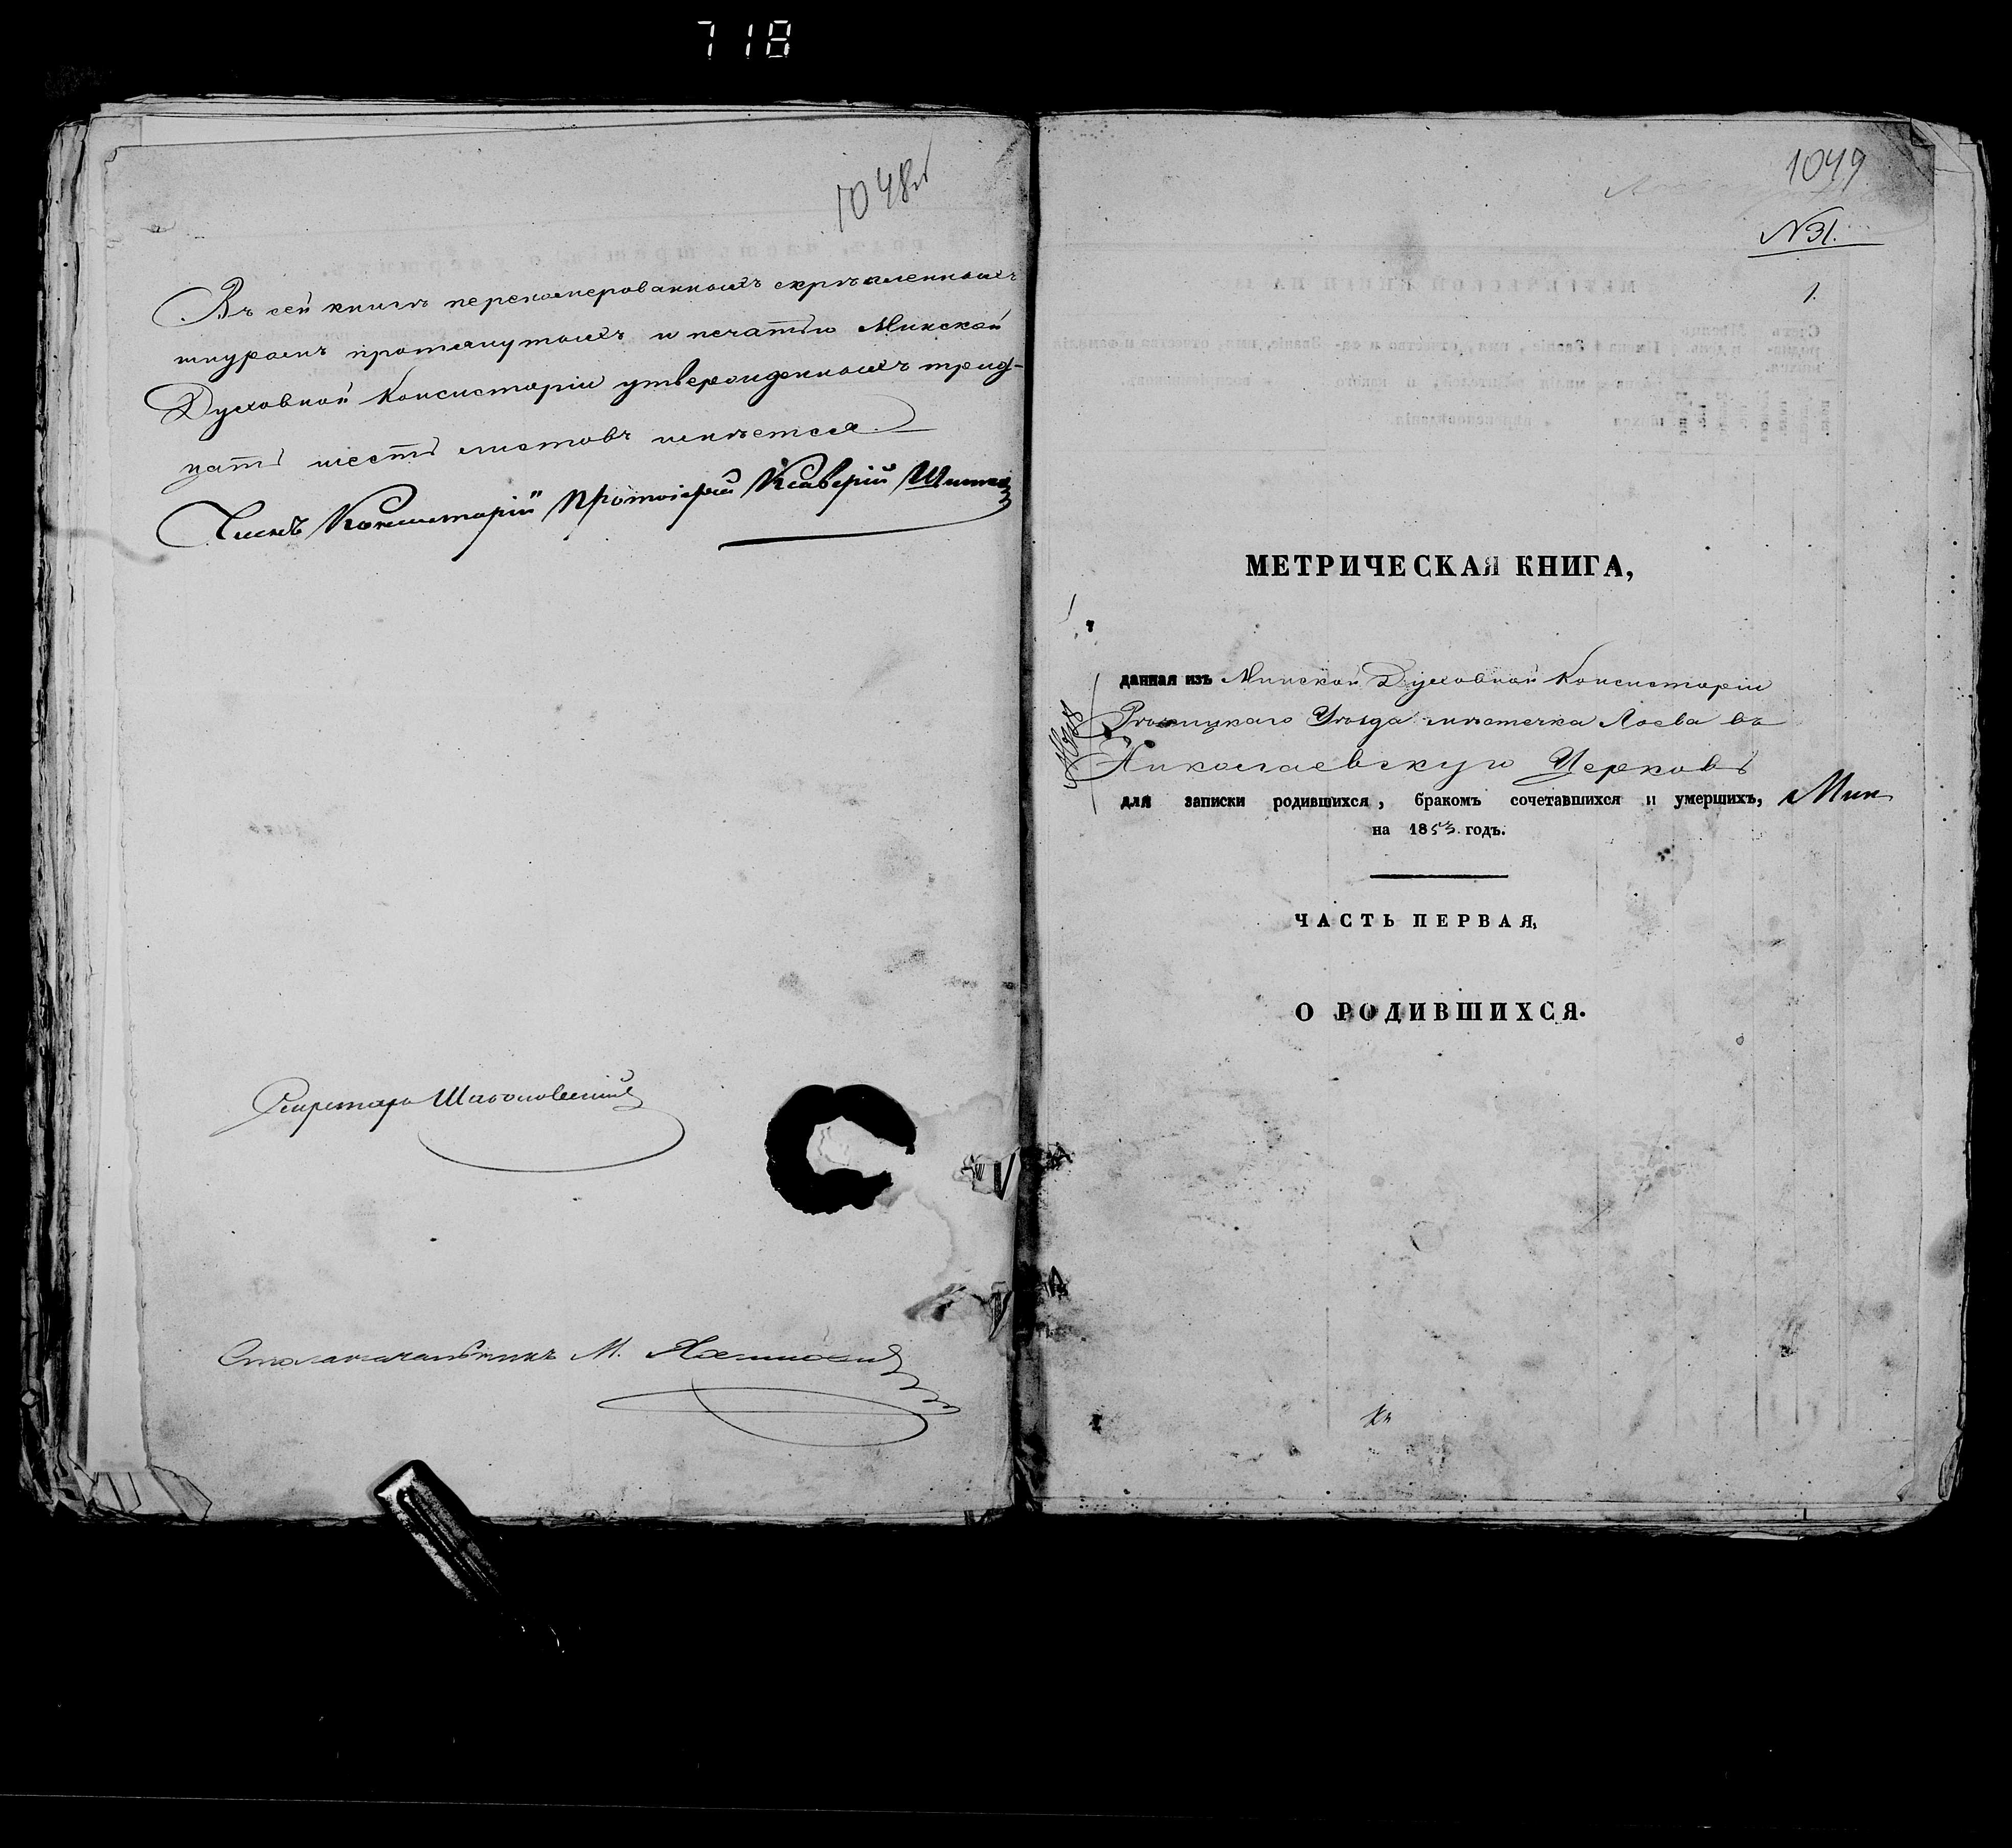 718
1048об
Въ сей книгѣ перенумерованныхъ скрѣпленныхъ
шнуромъ протянутыхъ и печатью Минской
Духовной Консисторіи утвержденныхъ трид-
цать шесть листовъ имѣется.
Членъ Консисторіи Протоіерей Ксаверій
Секретарь
Столоначальникъ М.
1049
N31.
1.
МЕТРИЧЕСКАЯ КНИГА,
данная изъ Минской Духовной Консисторіи
Рѣчицкаго Уѣзда мѣстечка Лоева въ
Николаевскую Церковь
для записки родившихся, бракомъ сочетавшихся и умершихъ, Мин
на 1853 годъ.
ЧАСТЬ ПЕРВАЯ,
О РОДИВШИХСЯ.